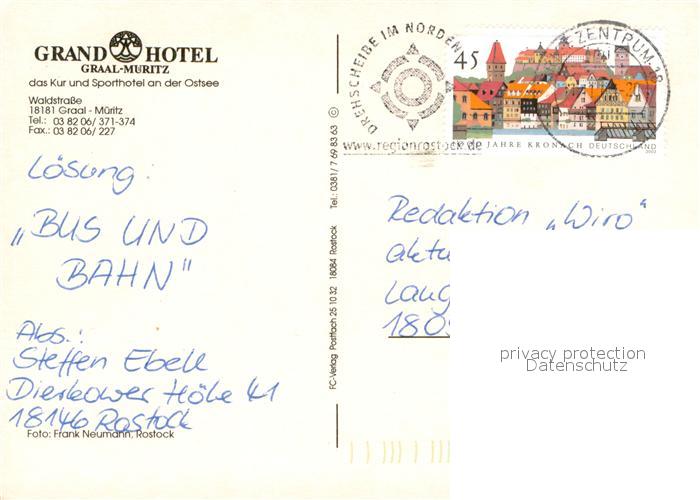 GRAND HOTEL
GRAAL-MÜRITZ
das Kur und Sporthotel an der Ostsee
Waldstraße
18181 Graal - Müritz
Tel.: 03 82 06/ 371-374
Fax.: 03 82 06/ 227
Lösung:
„BUS UND
BAHN"
Abs.:
Steffen Ebell
Dierkower Höhe 41
18146 Rostock
Foto: Frank Neumann, Rostock
FC-Verlag Postfach 25 10 32 18084 Rostock Tel.: 0381/ 7 69 83 63 ©
DREHSCHEIBE IM NORDEN
www.regionrostock.de
45
JAHRE KRONACH DEUTSCHLAND
2003
ZENTRUM
Redaktion „Wiro"
aktu
Lang
180
privacy protection
Datenschutz